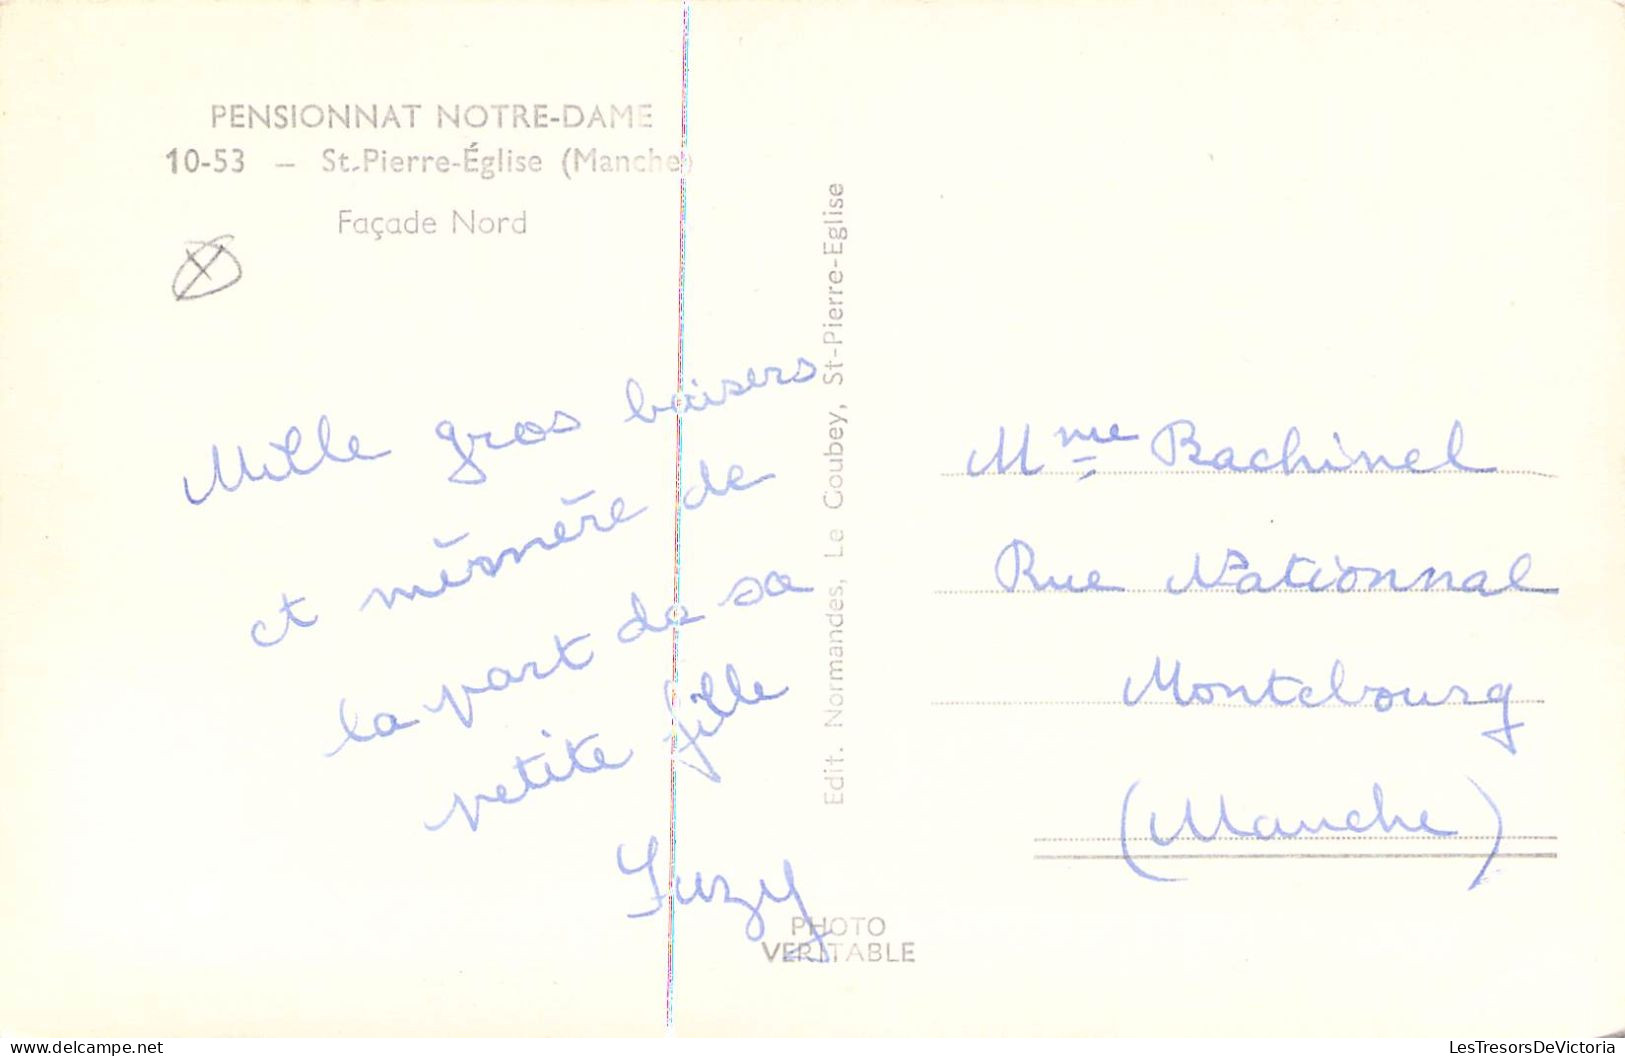 PENSIONNAT NOTRE-DAME
10-53 – St-Pierre-Église (Manche)
Façade Nord
Mille gros baisers
et mèmère de
la part de sa
petite fille
Suzy
Edit. Normandes, Le Goubey, St-Pierre-Eglise
PHOTO
VERITABLE
Mme Bachinel
Rue Nationnal
Montebourg
(Manche)
LesTresorsDeVictoria
delcampe.net